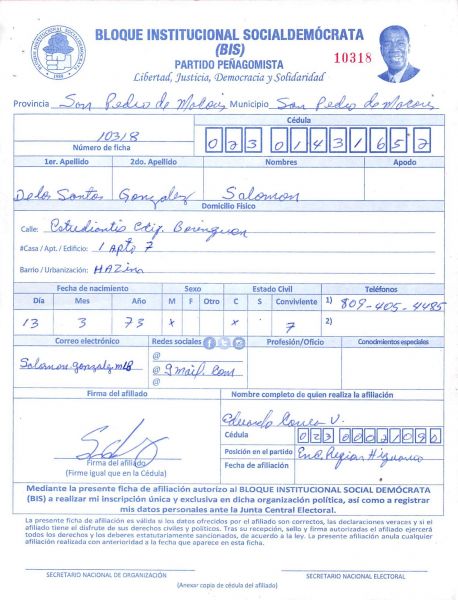 BLOQUE INSTITUCIONAL SOCIALDEMÓCRATA
(BIS)
PARTIDO PEÑAGOMISTA
Libertad, Justicia, Democracia y Solidaridad
10318
Provincia San Pedro de Macoris Municipio San Pedro de Macoris
10318
Número de ficha
Cédula
023 0143165 2
1er. Apellido 2do. Apellido Nombres Apodo
De los Santos Gonzalez Salomon
Domicilio Físico
Calle: Estudiantis
#Casa / Apt. / Edificio: 1 Apto 7
Barrio / Urbanización:
Fecha de nacimiento Sexo Estado Civil Teléfonos
Día Mes Año M F Otro C S Conviviente 1) 809-405-4485
13 3 73 x x 7 2)
Correo electrónico Redes sociales Profesión/Oficio Conocimientos especiales
@
Salomon gonzalez mlB @ gmail.com
@
Firma del afiliado Nombre completo de quien realiza la afiliación
Eduardo Correa V.
Cédula 023 0002109 0
Firma del afiliado
(Firme igual que en la Cédula)
Posición en el partido Enc. Region Higuamo
Fecha de afiliación
Mediante la presente ficha de afiliación autorizo al BLOQUE INSTITUCIONAL SOCIAL DEMÓCRATA
(BIS) a realizar mi inscripción única y exclusiva en dicha organización política, así como a registrar
mis datos personales ante la Junta Central Electoral.
La presente ficha de afiliación es válida si los datos ofrecidos por el afiliado son correctos, las declaraciones veraces y si el
afiliado tiene el disfrute de sus derechos civiles y políticos. Tras su recepción, sello y firma autorizadas el afiliado ejercerá
todos los derechos y los deberes estatutariamente sancionados, de acuerdo a la ley. La presente afiliación anula cualquier
afiliación realizada con anterioridad a la fecha que aparece en esta ficha.
SECRETARIO NACIONAL DE ORGANIZACIÓN SECRETARIO NACIONAL ELECTORAL
(Anexar copia de cédula del afiliado)